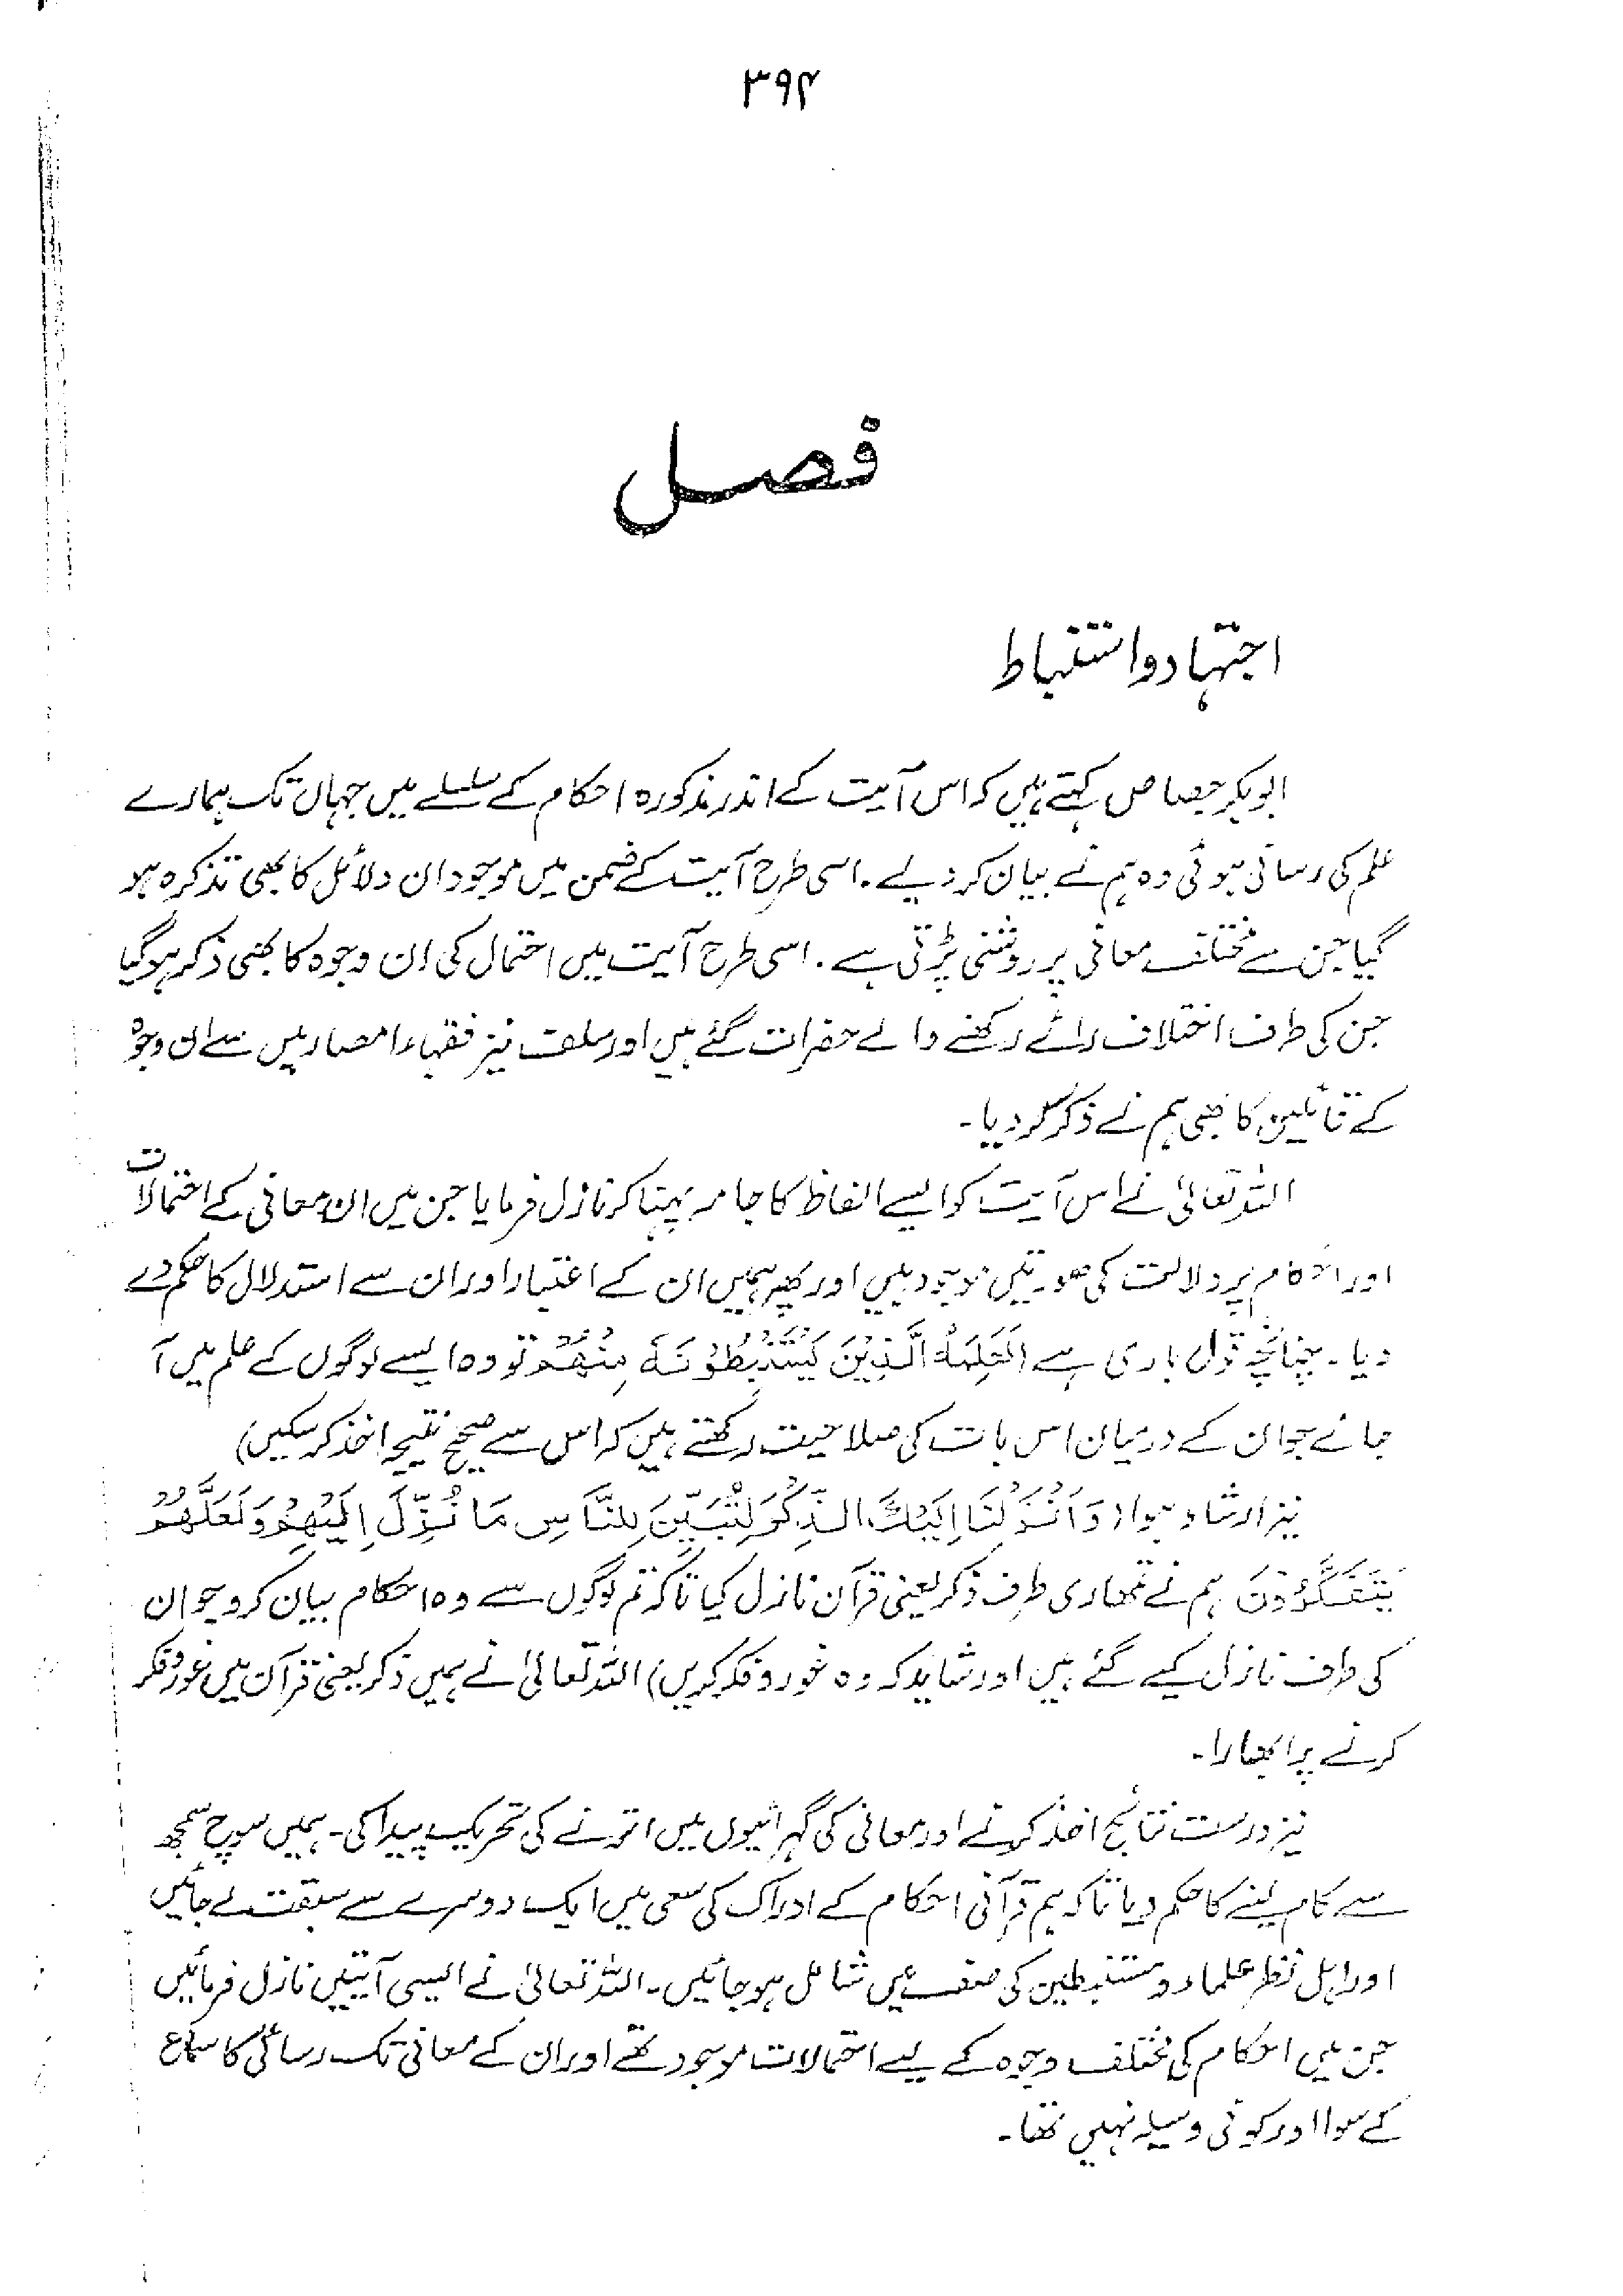 ۳۹۴
فصل
اجتہاد و استنباط
ابوبکر جصاص کہتے ہیں کہ اس آیت کے اندر مذکورہ احکام کے سلسلے میں جہاں تک ہمارے
علم کی رسائی ہوئی وہ ہم نے بیان کر دیے۔ اسی طرح آیت کے ضمن میں موجود ان دلائل کا بھی تذکرہ ہو
گیا جن سے مختلف معانی پر روشنی پڑتی ہے۔ اسی طرح آیت میں احتمال کی ان وجوہ کا بھی ذکر ہو گیا
جن کی طرف اختلاف رائے رکھنے والے حضرات گئے ہیں اور سلف نیز فقہاء امصار میں سے ان وجوہ
کے قائلین کا بھی ہم نے ذکر کر دیا۔
اللہ تعالیٰ نے اس آیت کو ایسے الفاظ کا جامہ پہنا کر نازل فرمایا جن میں ان معانی کے احتمالات
اور احکام پر دلالت کی صورتیں موجود ہیں اور پھر ہمیں ان کے اعتبار اور ان سے استدلال کا حکم دے
دیا۔ چنانچہ قول باری ہے (لَعَلِمَهُ الَّذِيْنَ يَسْتَنْبِطُوْنَهٗ مِنْهُمْ تو وہ ایسے لوگوں کے علم میں آ
جائے جو ان کے درمیان اس بات کی صلاحیت رکھتے ہیں کہ اس سے صحیح نتیجہ اخذ کر سکیں)
نیز ارشاد ہوا (وَاَنْزَلْنَا اِلَيْكَ الذِّكْرَ لِتُبَيِّنَ لِلنَّاسِ مَا نُزِّلَ اِلَيْهِمْ وَلَعَلَّهُمْ
يَتَفَكَّرُوْنَ ہم نے تمھاری طرف ذکر یعنی قرآن نازل کیا تاکہ تم لوگوں سے وہ احکام بیان کرو جو ان
کی طرف نازل کیے گئے ہیں اور شاید کہ وہ غور و فکر کریں) اللہ تعالیٰ نے ہمیں ذکر یعنی قرآن میں غور و فکر
کرنے پر ابھارا۔
نیز درست نتائج اخذ کرنے اور معانی کی گہرائیوں میں اترنے کی تحریک پیدا کی۔ ہمیں سوچ سمجھ
سے کام لینے کا حکم دیا تاکہ ہم قرآنی احکام کے ادراک کی سعی میں ایک دوسرے سے سبقت لے جائیں
اور اہل نظر علماء و مستنبطین کی صف میں شامل ہو جائیں۔ اللہ تعالیٰ نے ایسی آیتیں نازل فرمائیں
جن میں احکام کی مختلف وجوہ کے لیے احتمالات موجود تھے اور ان کے معانی تک رسائی کا سماع
کے سوا اور کوئی وسیلہ نہیں تھا۔